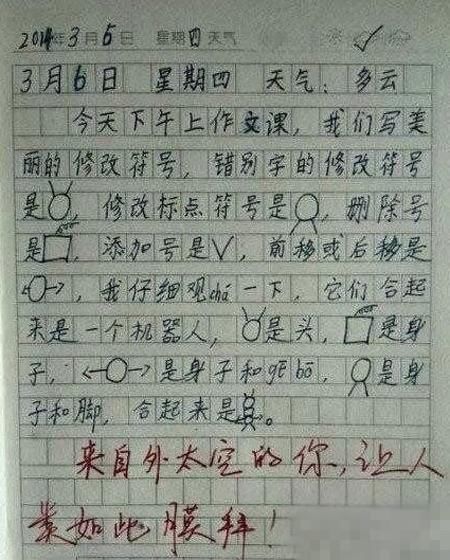 2014年3月6日 星期四 天气
3月6日 星期四 天气:多云
今天下午上作文课,我们写美
丽的修改符号,错别字的修改符号
是 ,修改标点符号是 ,删除号
是 ,添加号是∨,前移或后移是
←○→,我仔细观chá一下,它们合起
来是一个机器人, 是头, 是身
子, ←○→是身子和gē bo, 是身
子和脚,合起来是 。
来自外太空的你,让人
如此膜拜!